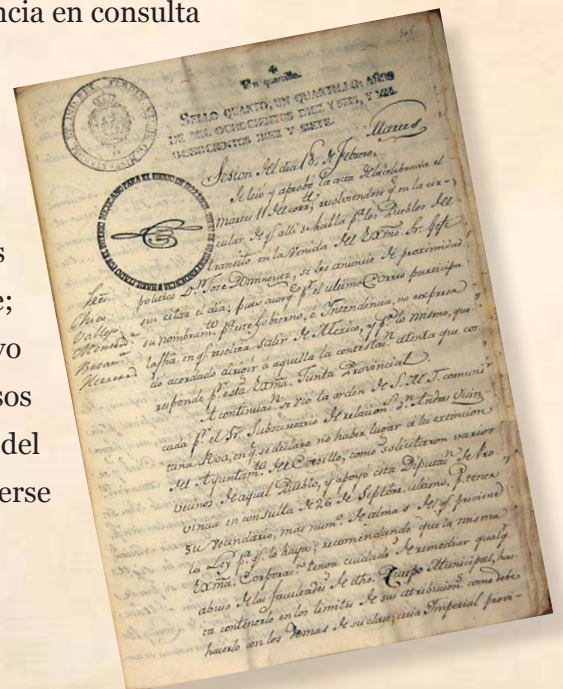 ncia en consulta
s
e;
vo
sos
del
erse
4
Un quartillo.
SELLO QUARTO, UN QUARTILLO: AÑOS
DE MIL OCHOCIENTOS DIEZ Y SEIS, Y MIL
OCHOCIENTOS DIEZ Y SIETE.
Martes
Sesion del dia 18 de Febrero.
Se leyó y aprobó la acta de la celebrada el
martes 11 del corrte., resolviendose q. en la cir-
cular de q. alli se habla pa. los Pueblos del
transito en la Venida del Exmo. Sr. Gefe
politico Dn. Jose Dominguez, se les anuncie de proximidad
sin citar el dia; pues aunq. pr. el ultimo Correo participa
su nombramto. pa. este Gobierno, é Intendencia, no expresa
la fha. en q. resolvia salir de Mexico, y pr. lo mismo, que-
do acordado dirigir á aquella la contestacn. atenta que cor-
responde pr. esta Exma. Junta Provincial.
A continuacn. se vió la orden de S. M. I. comuni-
cada pr. el Sr. Subsecretario de relacion. Dn. Andres Quin-
tana Roo, en q. se declara no haber lugar á la extincion
del Ayuntamto. del Coesillo, como solicitaron varios
vecinos de aquel Pueblo, y apoyó esta Diputacn. de Pro-
vincia en consulta de 26 de Septbre. ultimo, pr. tener
su vecindario, más num. de almas del q. previene
la Ley pa. q. lo haya; recomendando que la misma
Exma. Corporacn. tenga cuidado de remediar qualq.
abuso de las facultades de dho. Cuerpo Municipal, has-
ta contenerlo en los limites de sus atribucion. como debe
hacerlo con los demas de su clase; cuia Imperial provi-
Chico
Vallejo